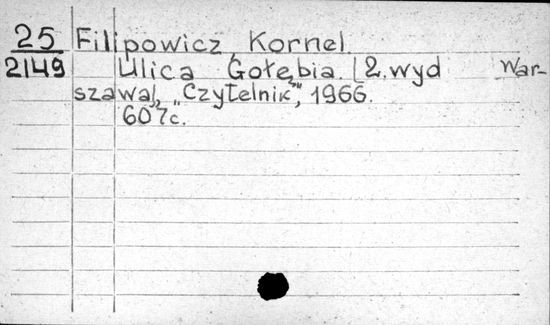 25 Filipowicz, Kornel.
2149 Ulica Gołębia. [2. wyd War-
szawa], „Czytelnik", 1966.
607с.